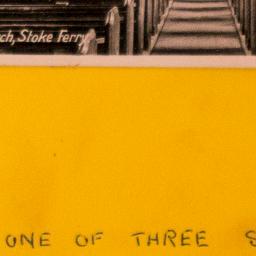 ch, Stoke Ferry
ONE OF THREE S